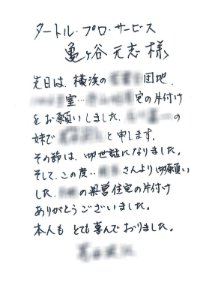 タートル・プロ・サービス
亀ヶ谷元志様
先日は、横浜の団地、
室 宅の片付け
をお願いしました、の
妹で と申します。
その節は、お世話になりました。
そして、この度、さんよりお願い
した、の県営住宅の片付け
ありがとうございました。
本人もとても喜んでおりました。